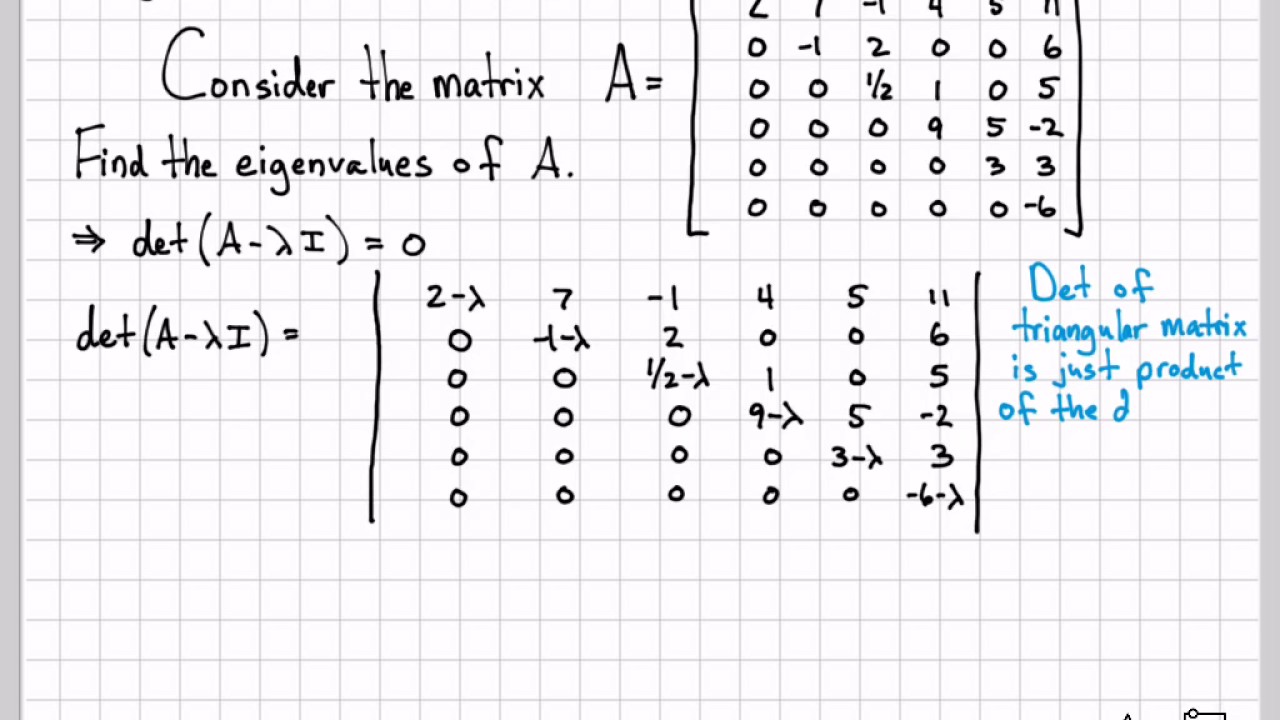 2 7 -1 4 5 11
Consider the matrix A = 0 -1 2 0 0 6
0 0 1/2 1 0 5
Find the eigenvalues of A. 0 0 0 9 5 -2
0 0 0 0 3 3
0 0 0 0 0 -6
⇒ det(A-λI) = 0
det(A-λI) =
2-λ 7 -1 4 5 11
0 -1-λ 2 0 0 6
0 0 1/2-λ 1 0 5
0 0 0 9-λ 5 -2
0 0 0 0 3-λ 3
0 0 0 0 0 -6-λ
Det of
triangular matrix
is just product
of the d